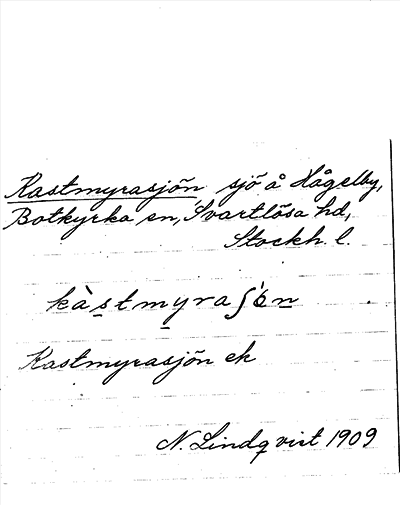 Kastmyrasjön sjö å Hågelby,
Botkyrka sn, Svartlösa hd,
Stockh. l.
kàstmyraʃö́n
Kastmyrasjön ek
N. Lindqvist 1909